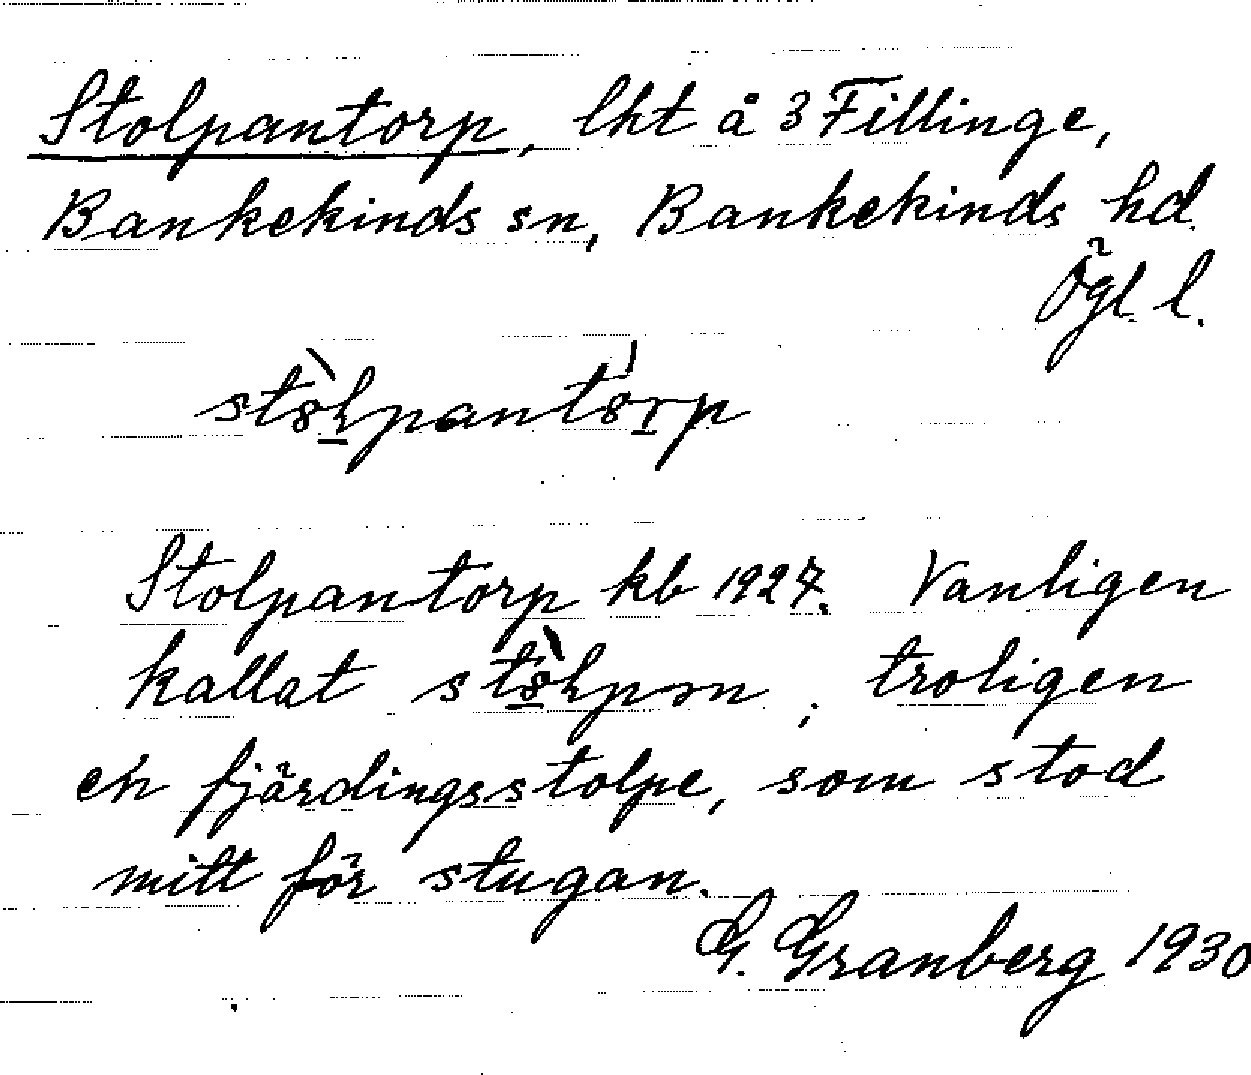 Stolpantorp, lht å 3 Fillinge,
Bankekinds sn, Bankekinds hd.
Ögl. l.
Stolpantorp kb 1927. Vanligen
kallat , troligen
en fjärdingsstolpe, som stod
mitt för stugan.
G. Granberg 1930